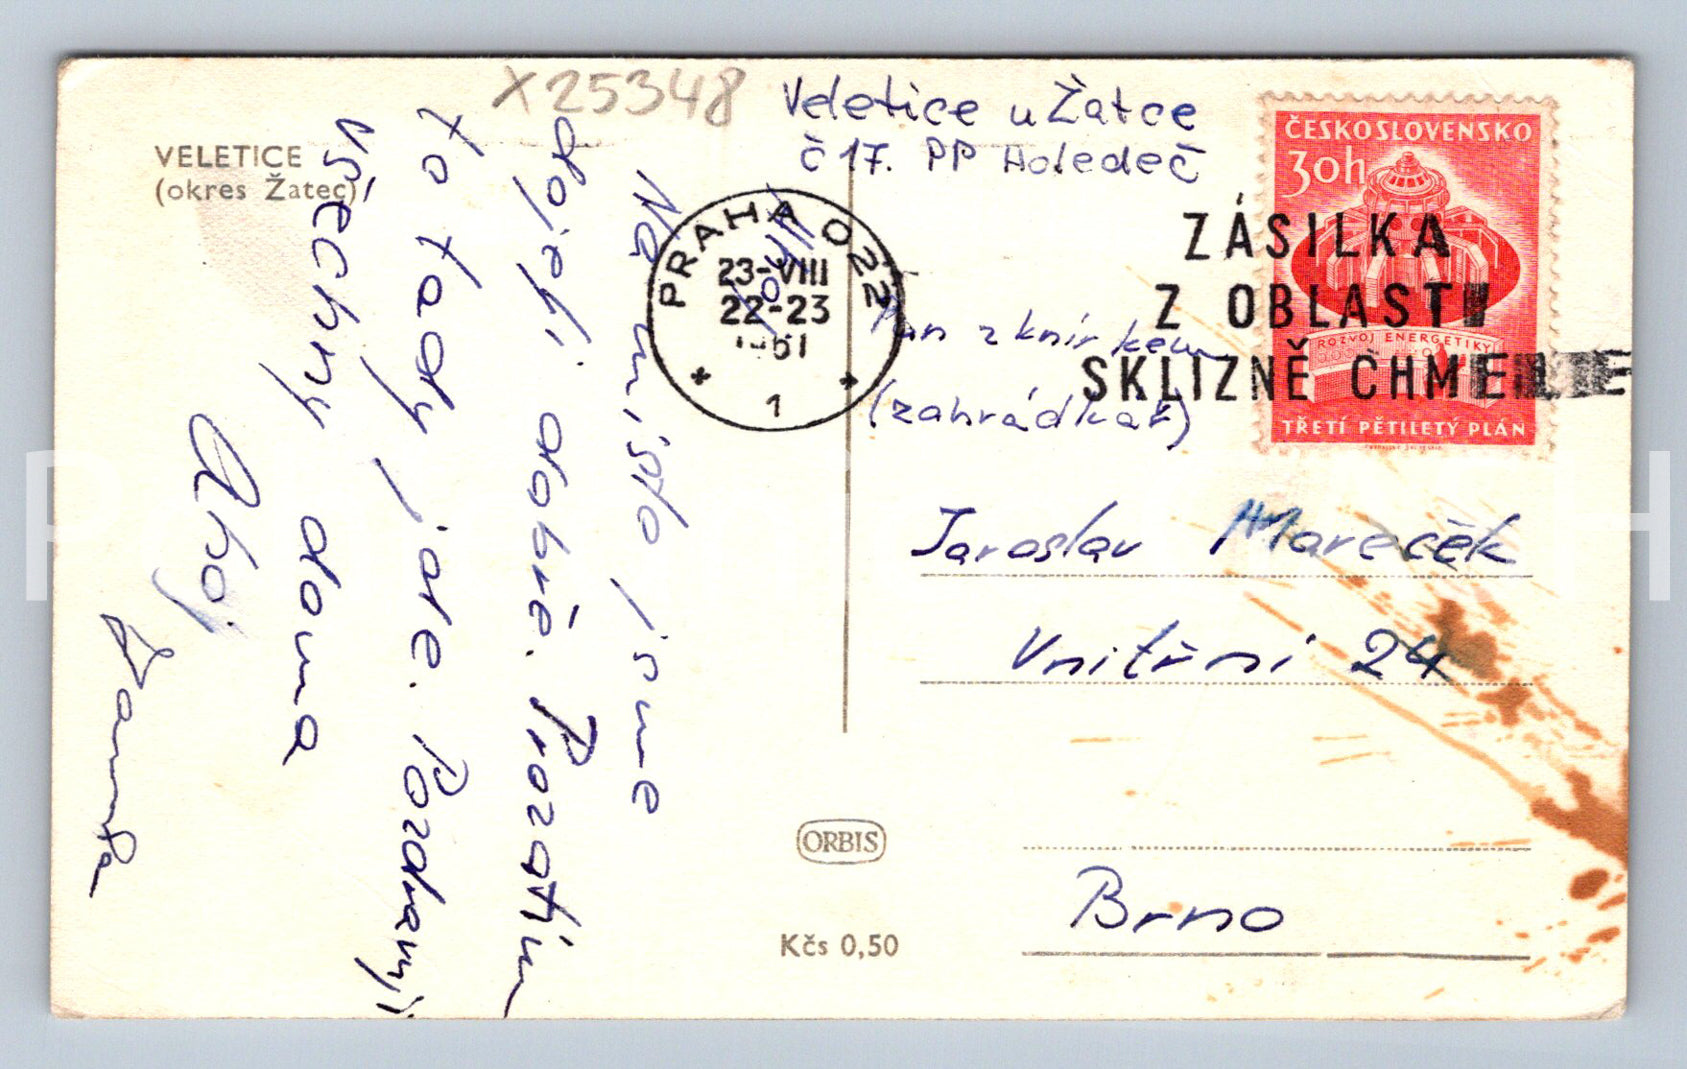 X25348
VELETICE
(okres Žatec)
Veletice u Žatce
č 17. PP Holedeč
Ahoj
Na místo jsme
dojeli dobře. Prozatím
to tady jde. Pozdravuji
všechny doma
Ahoj
PRAHA 022
23-VIII
22-23
61
1
ČESKOSLOVENSKO
30h
ROZVOJ ENERGETIKY
TŘETÍ PĚTILETÝ PLÁN
ZÁSILKA
Z OBLASTI
SKLIZNĚ CHMELE
Pan z knírkem
(zahrádkář)
Jaroslav Mareček
Vnitřní 24
Brno
ORBIS
Kčs 0,50